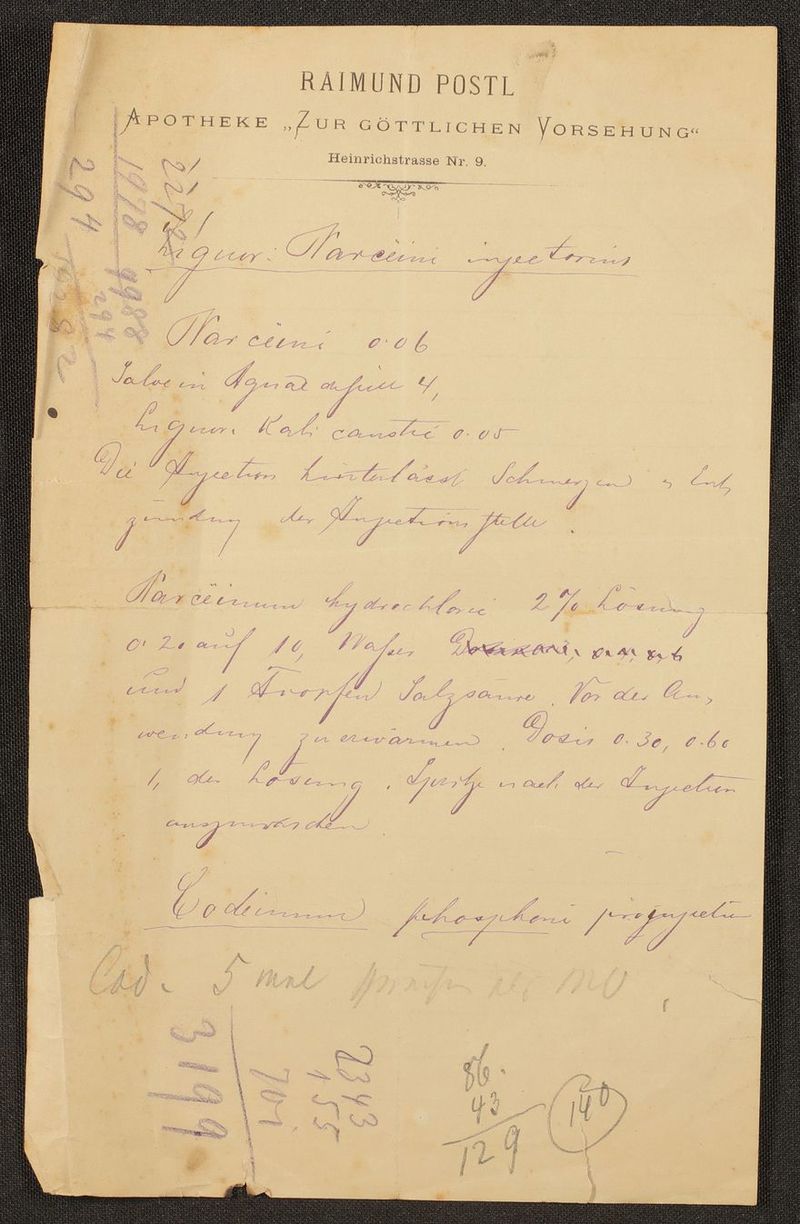 RAIMUND POSTL
APOTHEKE „ZUR GÖTTLICHEN VORSEHUNG“
Heinrichstrasse Nr. 9.
Liquor: Narceini injectorius
Narceini 0.06
Solve in Aquae destill 4,
Liquor. Kali caustici 0.05
Die Injection hinterlässt Schmerzen u Ent,
zündung der Injections stelle.
Narceinum hydrochloric 2% Lösung
0.20 auf 10, Wasser
und 1 Tropfen Salzsäure. Vor der An,
wendung zu erwärmen. Dosis 0.30, 0.60
1, der Lösung. Spritze nach der Injection
auszuwaschen
Codeinum phosphori pro injectio
Cod. 5 mal
2272
1978
294
1988
294
2343
155
701
3199
86.
43
129
140